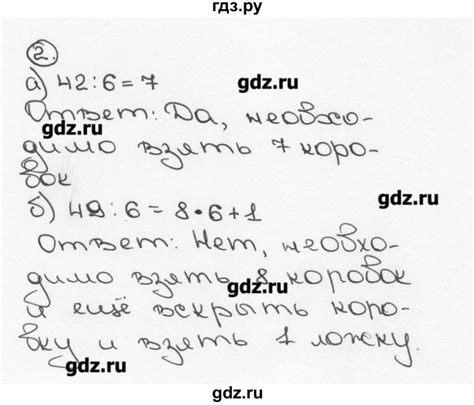 гдз.ру
2.
а) 42:6=7
gdz.ru
Ответ: Да, необхо-
gdz.ru
димо взять 7 коро-
gdz.ru
бок
gdz.ru
б) 49:6=8·6+1
Ответ: Нет, необхо-
gdz.ru
димо взять 8 коробок
gdz.ru
и ещё вскрыть коро-
бку и взять 1 ложку.
gdz.ru
gdz.ru
gdz.ru